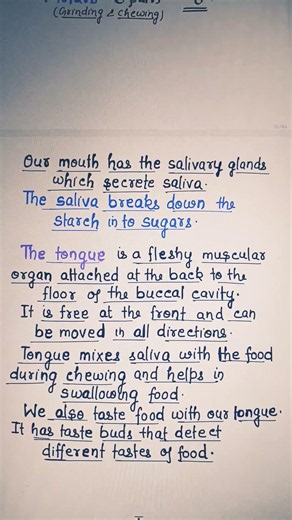 (Grinding & chewing)
Our mouth has the salivary glands
which secrete saliva.
The saliva breaks down the
starch in to sugars.
The tongue is a fleshy muscular
organ attached at the back to the
floor of the buccal cavity.
It is free at the front and can
be moved in all directions.
Tongue mixes saliva with the food
during chewing and helps in
swallowing food.
We also taste food with our tongue.
It has taste buds that detect
different tastes of food.